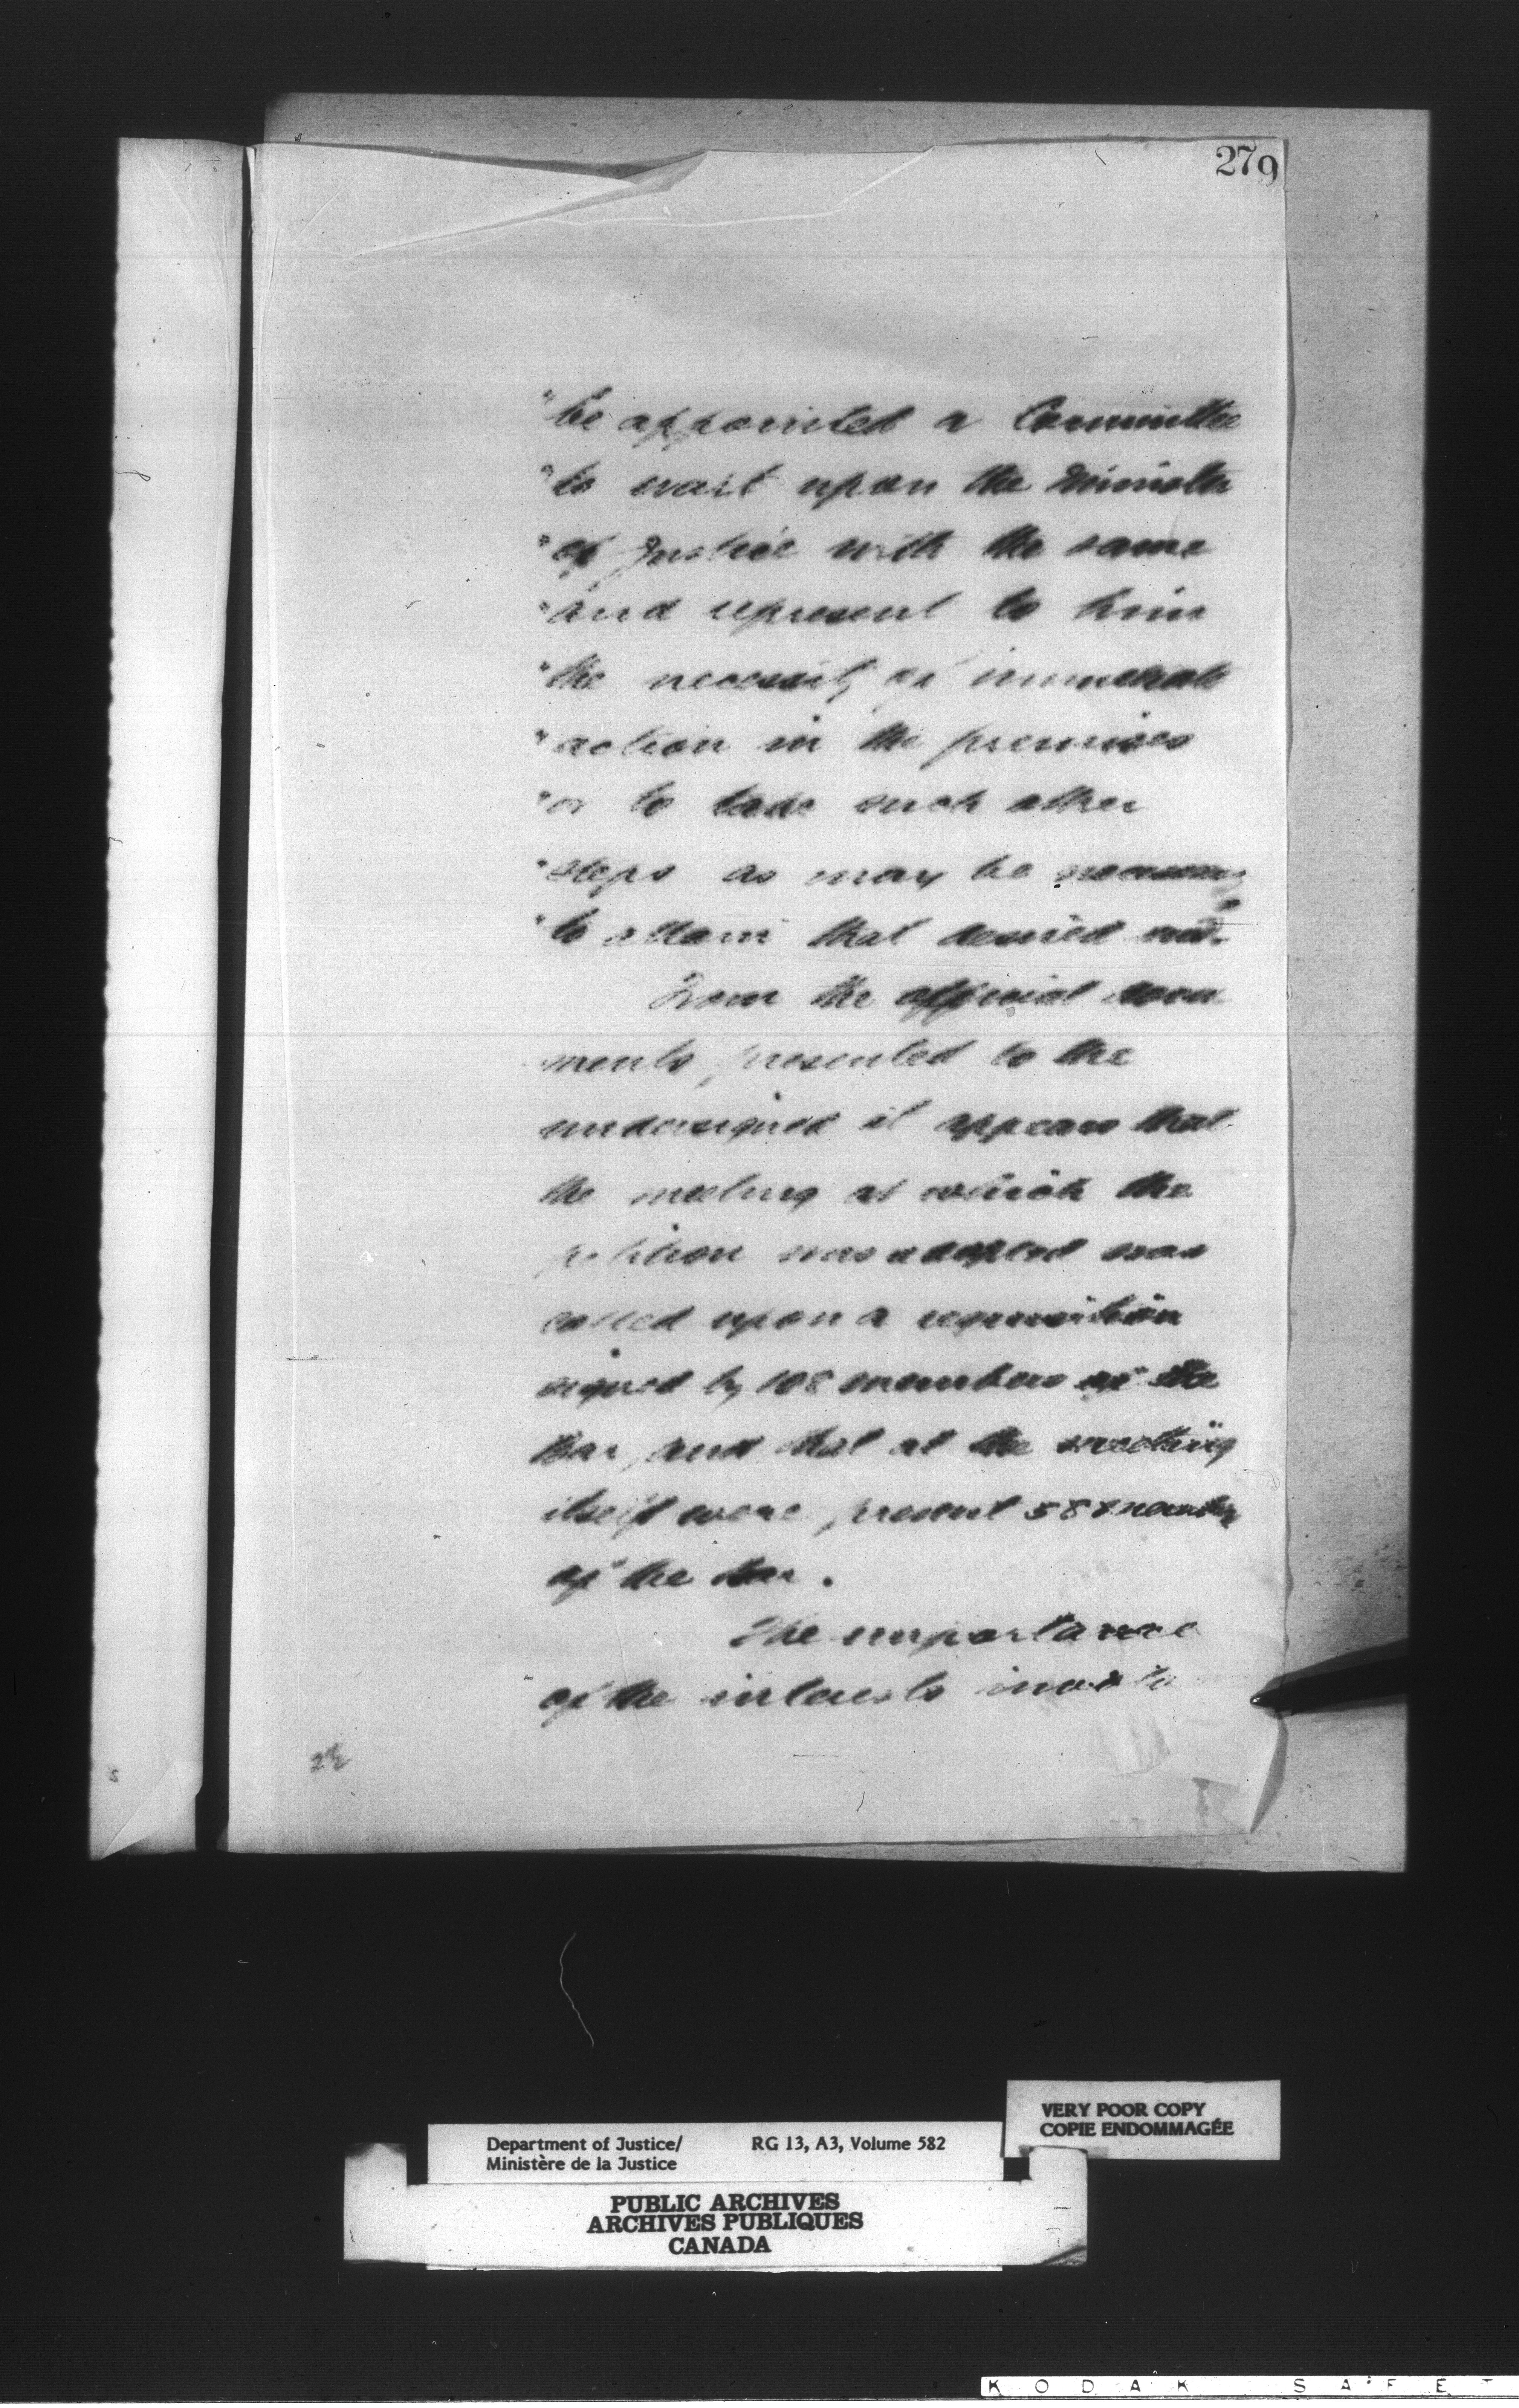 279
"be appointed a Committee
"to wait upon the Minister
"of Justice with the same
"and represent to him
"the necessity of immediate
"action in the premises
"or to take such other
"steps as may be necessary
"to attain that desired end."
From the official docu
ments presented to the
undersigned it appears that
the meeting at which the
petition was adopted was
called upon a requisition
signed by 108 members of the
Bar, and that at the meeting
itself were present 58 members
of the bar.
The importance
of the interests
VERY POOR COPY
COPIE ENDOMMAGÉE
Department of Justice/ RG 13, A3, Volume 582
Ministère de la Justice
PUBLIC ARCHIVES
ARCHIVES PUBLIQUES
CANADA
KODAK SAFET